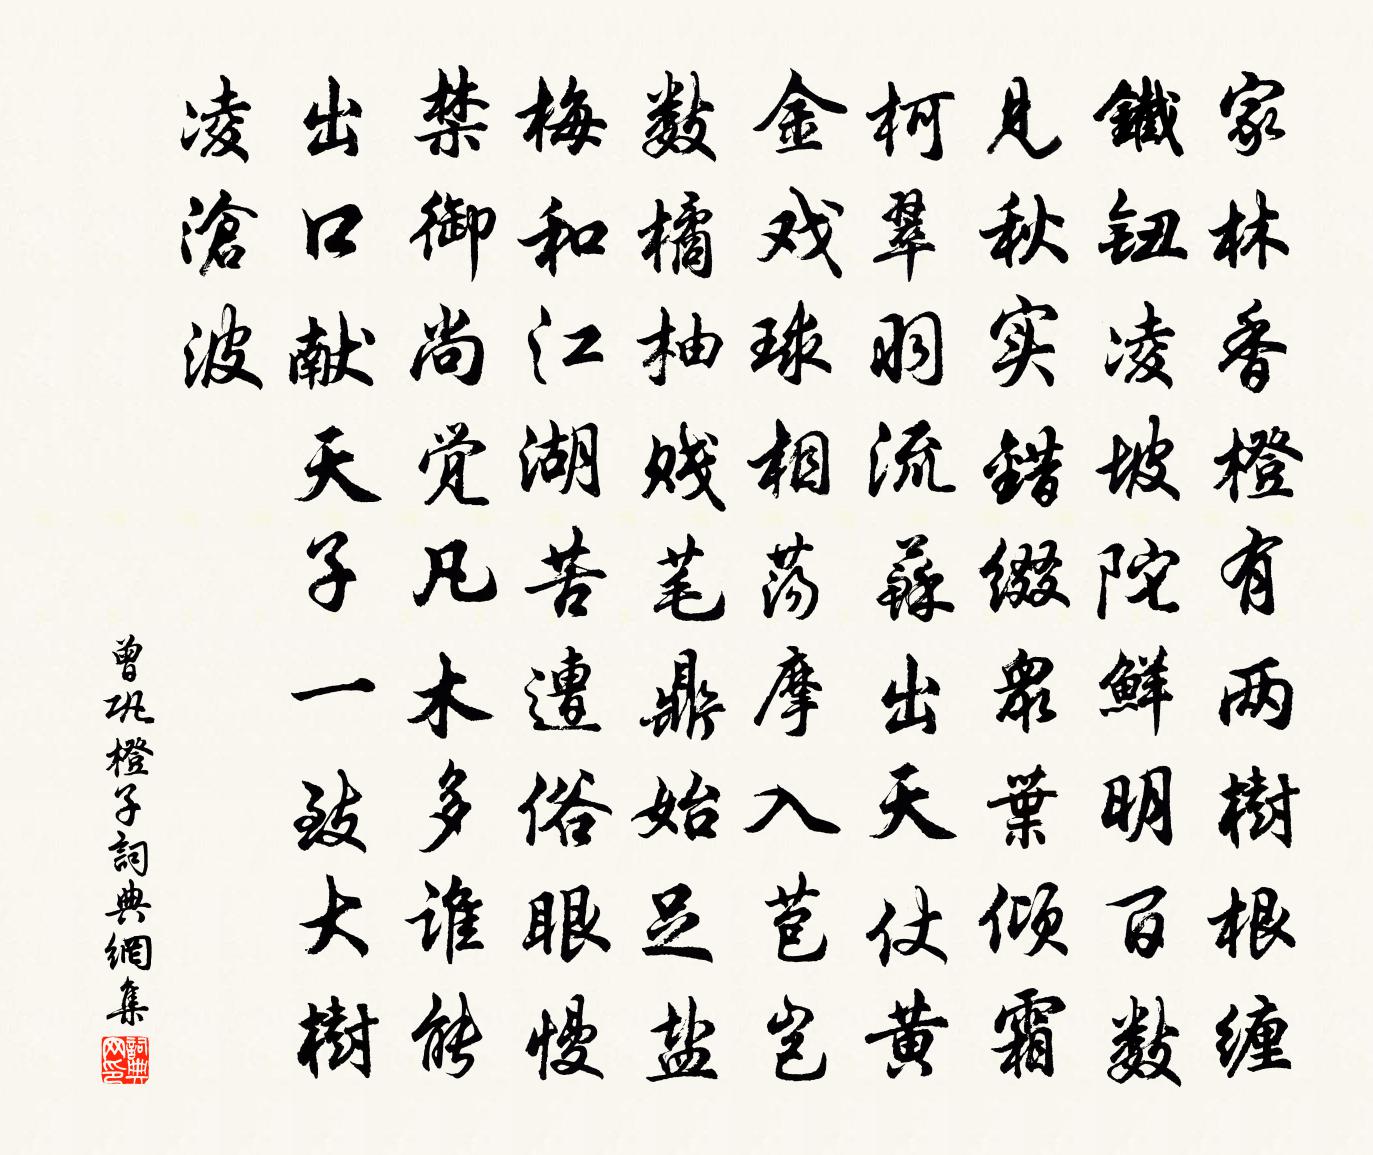 家林香橙有两樹根缠
鐵钮凌坡陀鮮明百數
見秋实錯缀衆葉倾霜
柯翠羽流蘇出天仗黄
金戏球相荡摩入苞岂
數橘柚贱芼鼎始足盐
梅和江湖苦遭俗眼慢
禁御尚觉凡木多谁能
出口献天子一致大樹
凌滄波
曾巩橙子詞典網集
詞典网印